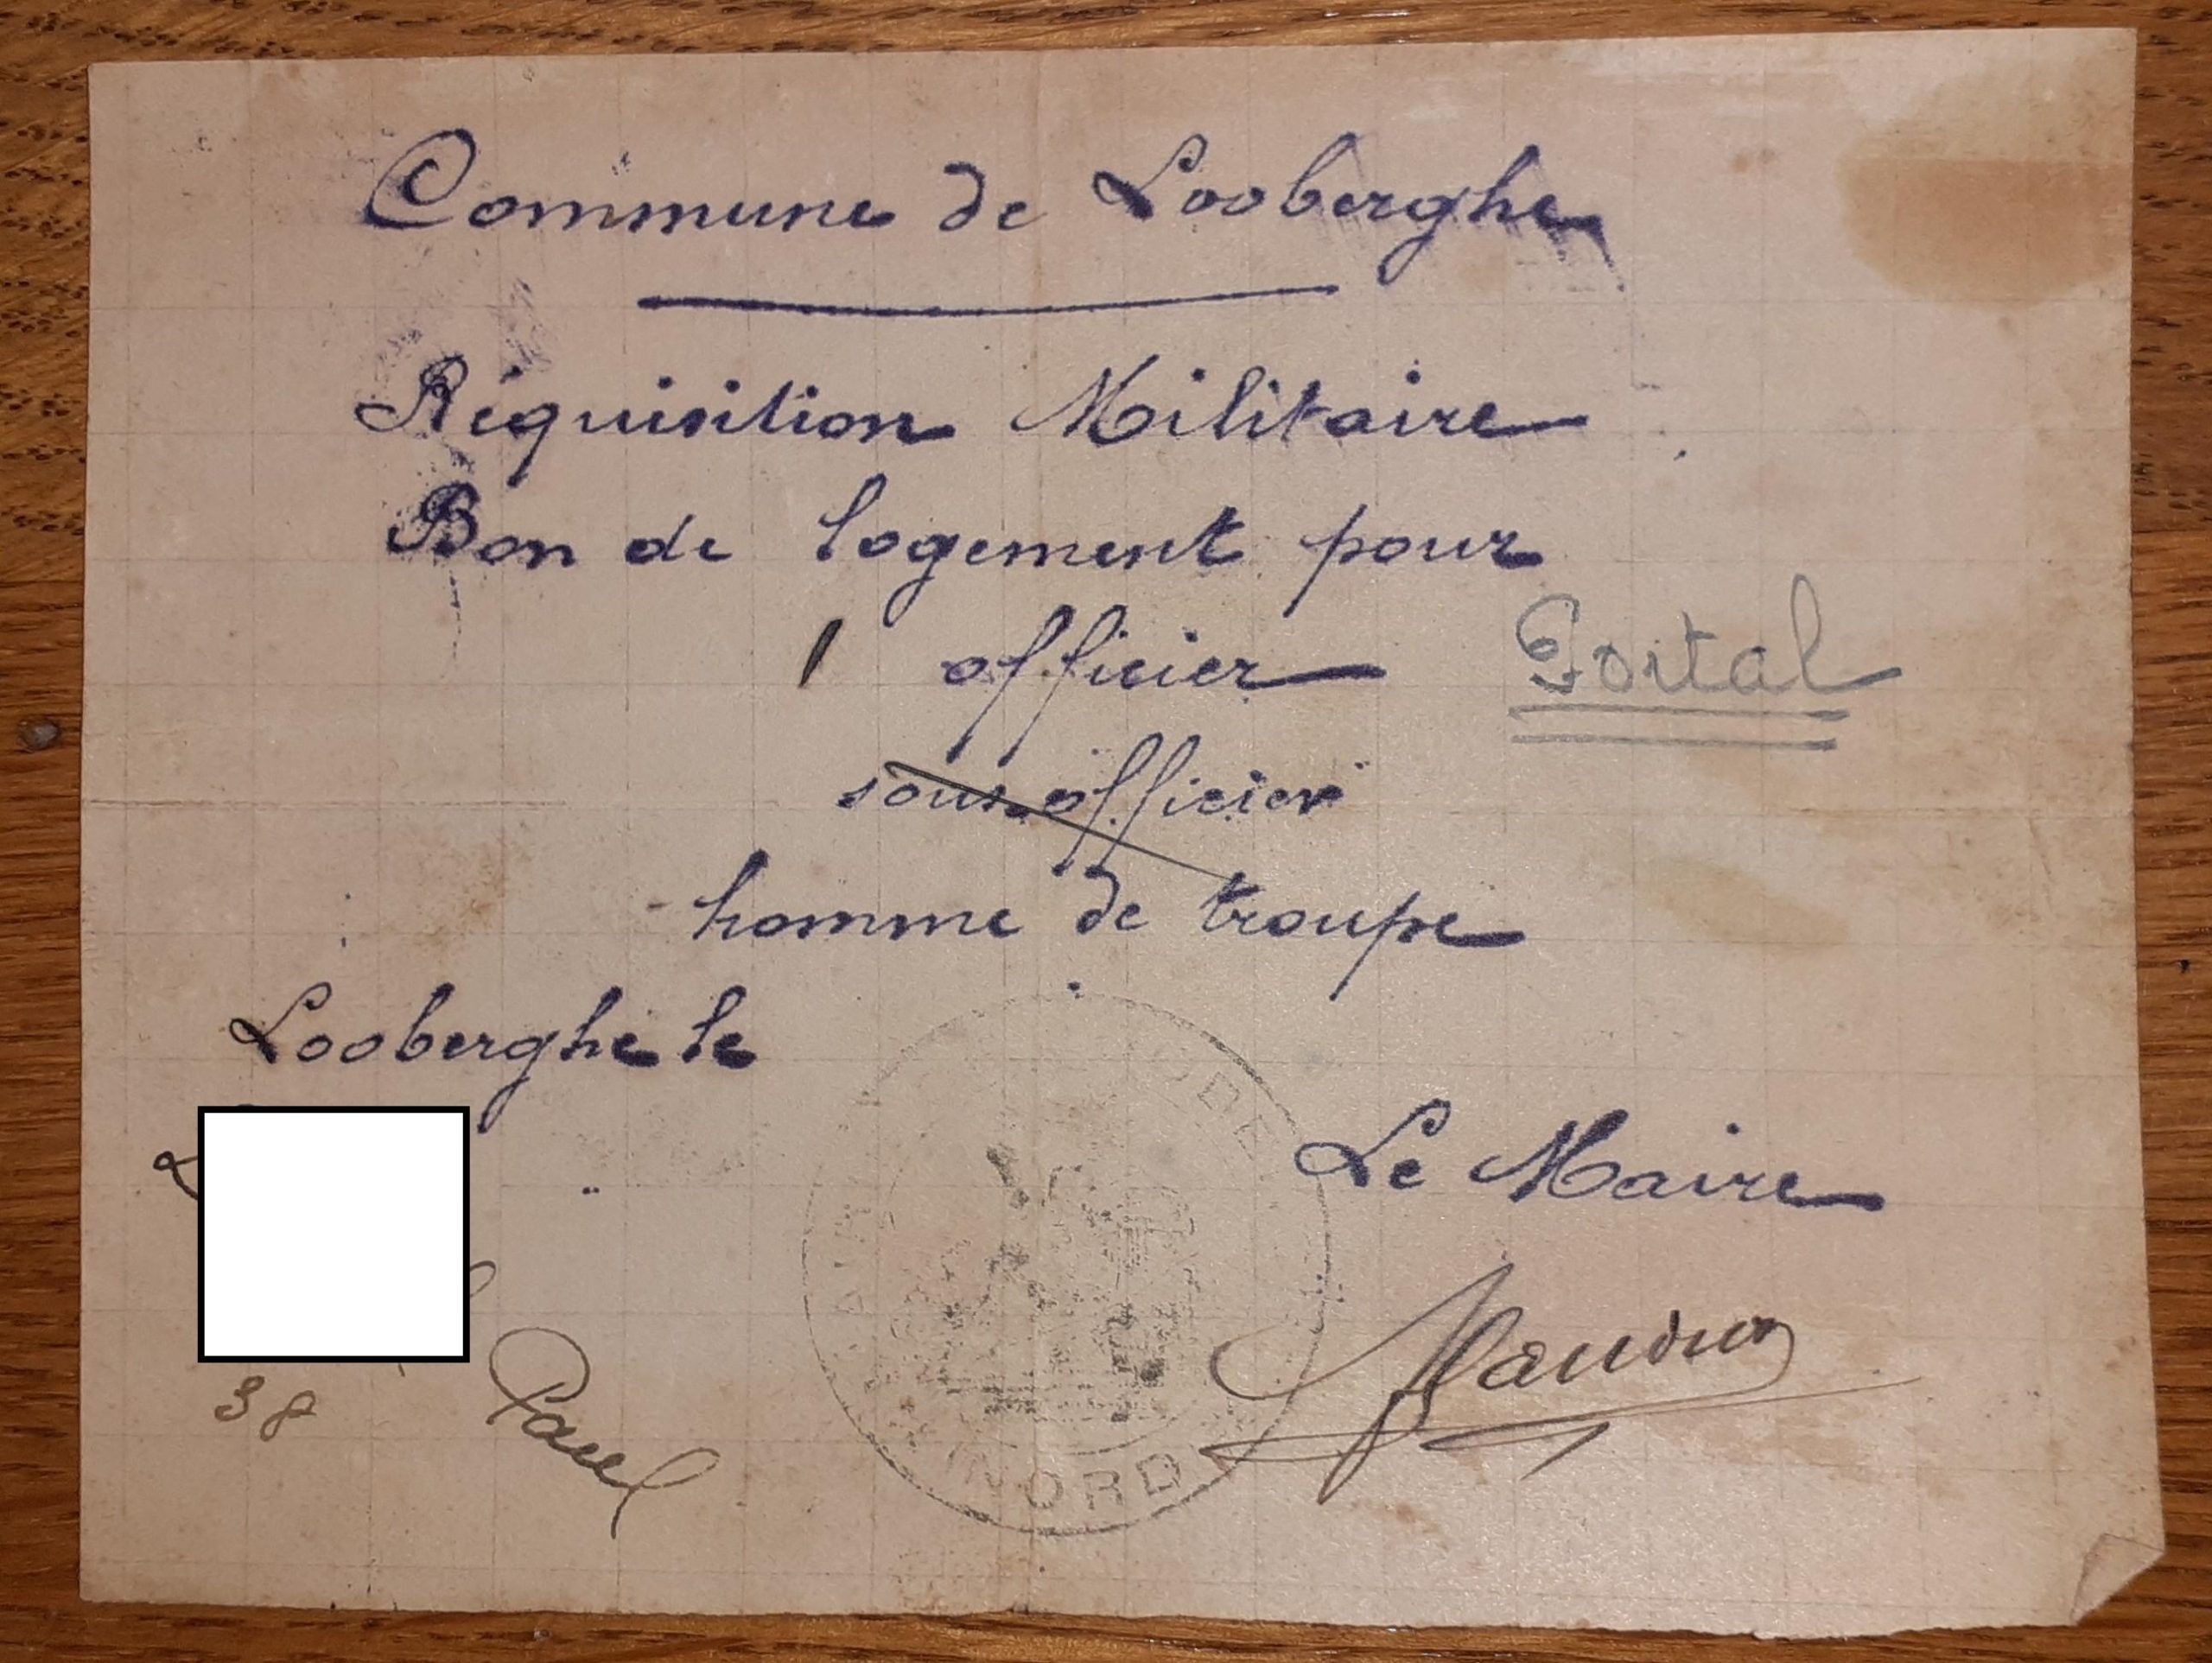 Commune de Looberghe
Réquisition Militaire
Bon de logement pour
1 officier
Portal
sous officier
homme de troupe
Looberghe le
Le Maire
38
Paul
NORD